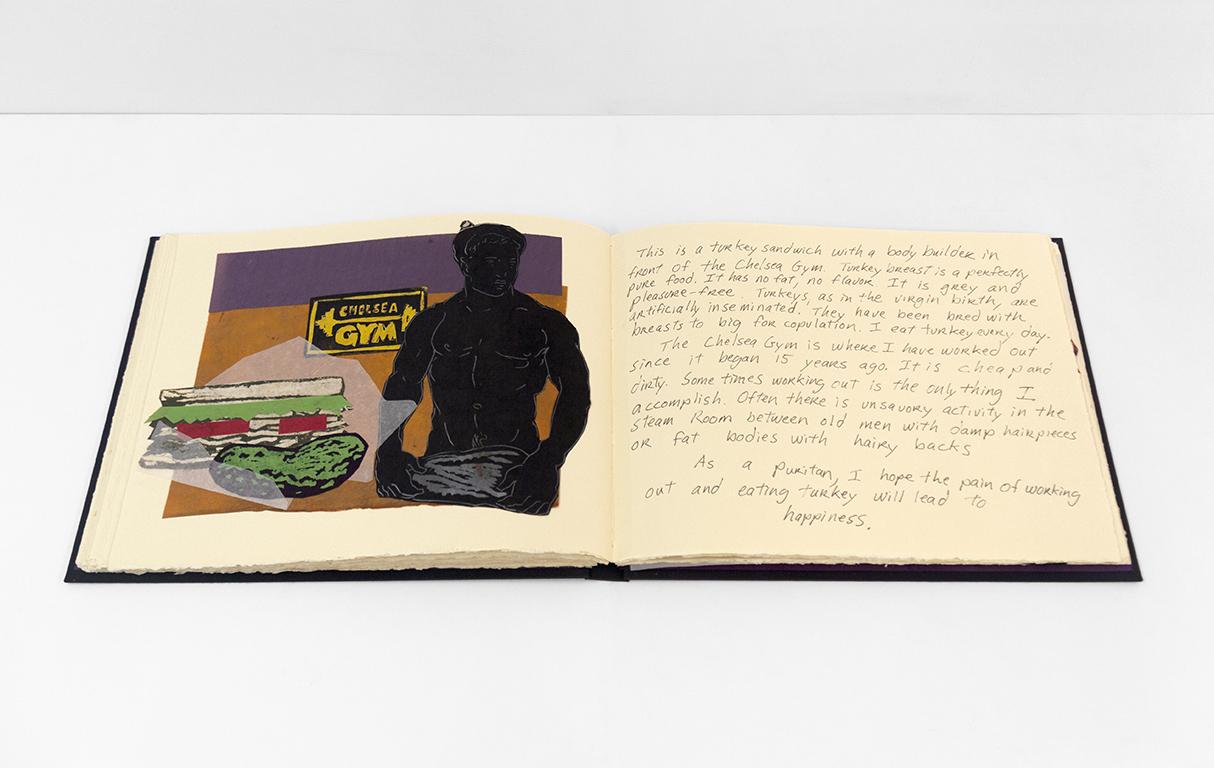 CHELSEA
GYM
This is a turkey sandwich with a body builder in
front of the Chelsea Gym. Turkey breast is a perfectly
pure food. It has no fat, no flavor. It is grey and
pleasure-free. Turkeys, as in the virgin birth, are
artificially inseminated. They have been bred with
breasts to big for copulation. I eat turkey every day.
The Chelsea Gym is where I have worked out
since it began 15 years ago. It is cheap and
dirty. Some times working out is the only thing I
accomplish. Often there is unsavory activity in the
steam room between old men with damp hairpieces
or fat bodies with hairy backs
As a puritan, I hope the pain of working
out and eating turkey will lead to
happiness.